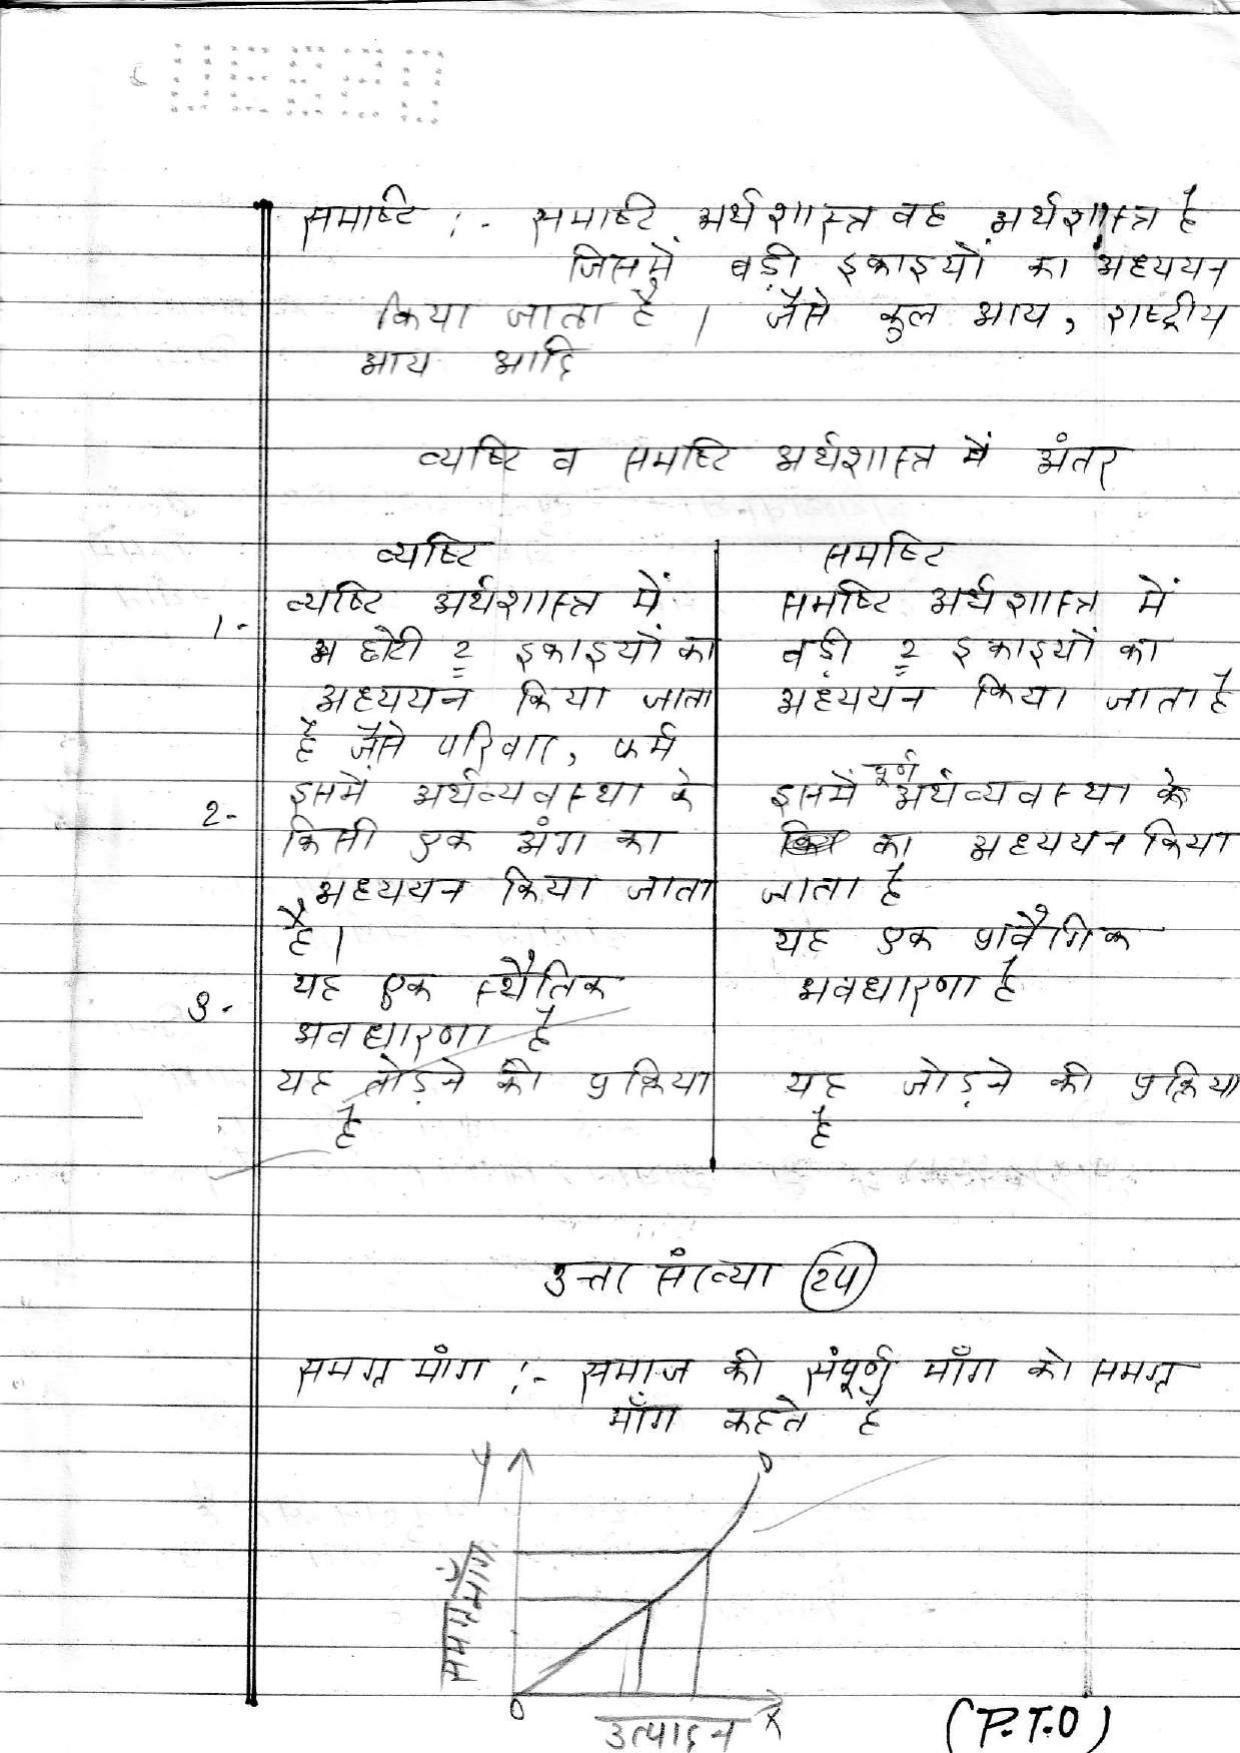 समष्टि :- समष्टि अर्थशास्त्र वह अर्थशास्त्र है
जिसमें बड़ी इकाइयों का अध्ययन
किया जाता है । जैसे कुल आय, राष्ट्रीय
आय आदि
व्यष्टि व समष्टि अर्थशास्त्र में अंतर
व्यष्टि
व्यष्टि अर्थशास्त्र में
1-
छोटी 2 इकाइयों का
अध्ययन किया जाता
है जैसे परिवार, फर्म
इसमें अर्थव्यवस्था के
2-
किसी एक अंग का
अध्ययन किया जाता
है।
यह एक स्थैतिक
3-
अवधारणा है
यह तोड़ने की प्रक्रिया
है
समष्टि
समष्टि अर्थशास्त्र में
बड़ी 2 इकाइयों का
अध्ययन किया जाता है
इसमें पूर्ण अर्थव्यवस्था के
का अध्ययन किया
जाता है
यह एक प्रावैगिक
अवधारणा है
यह जोड़ने की प्रक्रिया
है
उत्तर संख्या 24
समग्र मांग :- समाज की संपूर्ण माँग को समग्र
माँग कहते है
Y
D
समग्र माँग
O
उत्पादन X
(P.T.O)